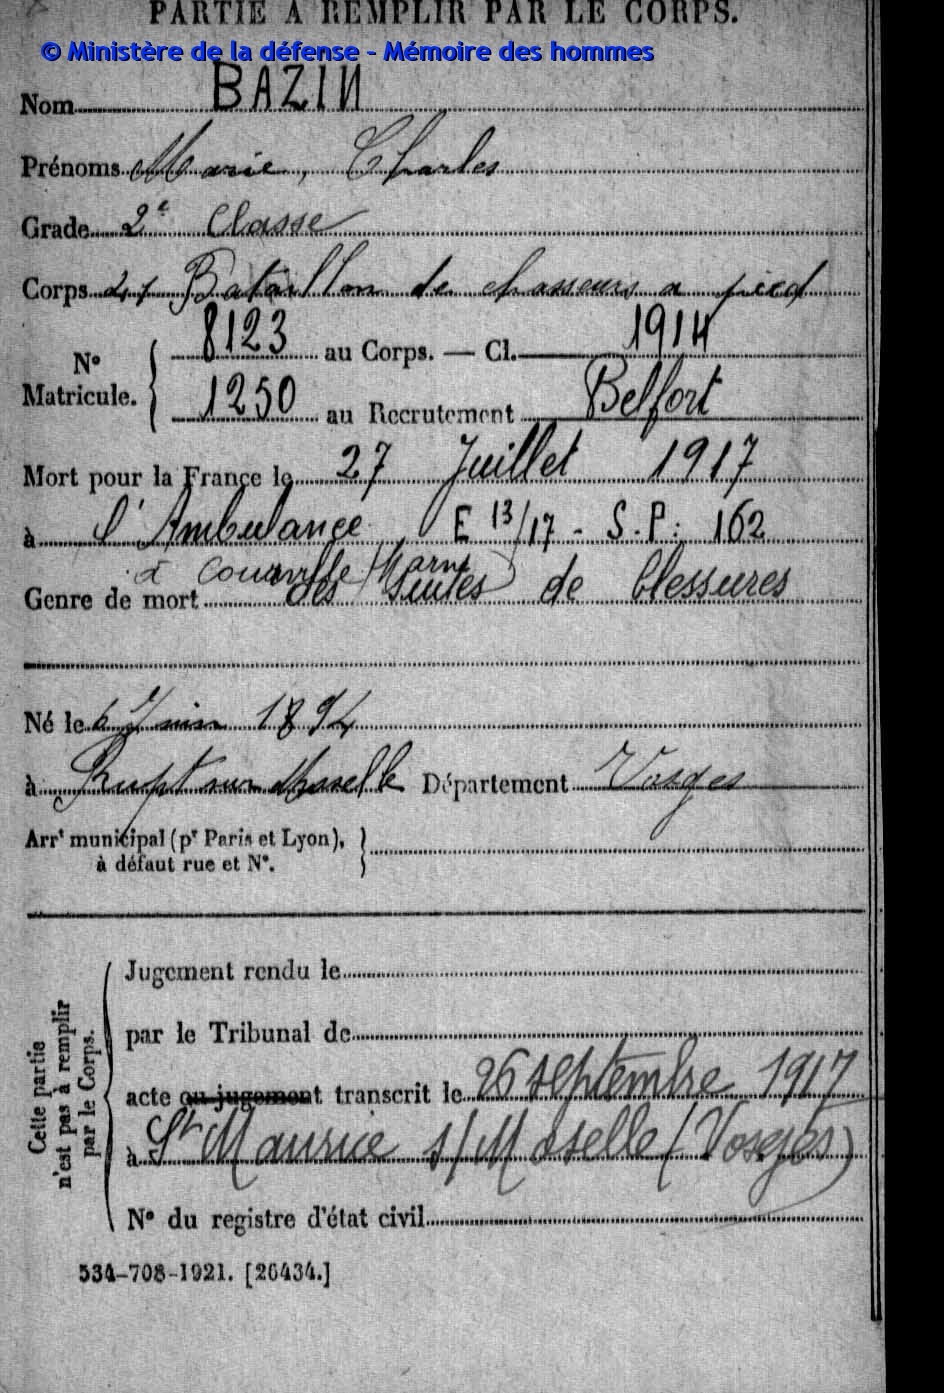 PARTIE A REMPLIR PAR LE CORPS.
© Ministère de la défense - Mémoire des hommes
Nom BAZIN
Prénoms Marie, Charles
Grade 2e Classe
Corps Bataillon de chasseurs a pied
8123 au Corps. — Cl. 1914
N° Matricule.
1250 au Recrutement Belfort
Mort pour la France le 27 Juillet 1917
à l'Ambulance E 13/17 - S.P: 162
à Courville (Marne)
Genre de mort des suites de blessures
Né le 6 Juin 1894
à Rupt sur Moselle Département Vosges
Arrt municipal (pr Paris et Lyon),
à défaut rue et N°.
Cette partie
n'est pas à remplir
par le Corps.
Jugement rendu le
par le Tribunal de
acte ou jugement transcrit le 26 septembre 1917
à St Maurice s/Moselle (Vosges)
N° du registre d'état civil
534-708-1921. [26434.]